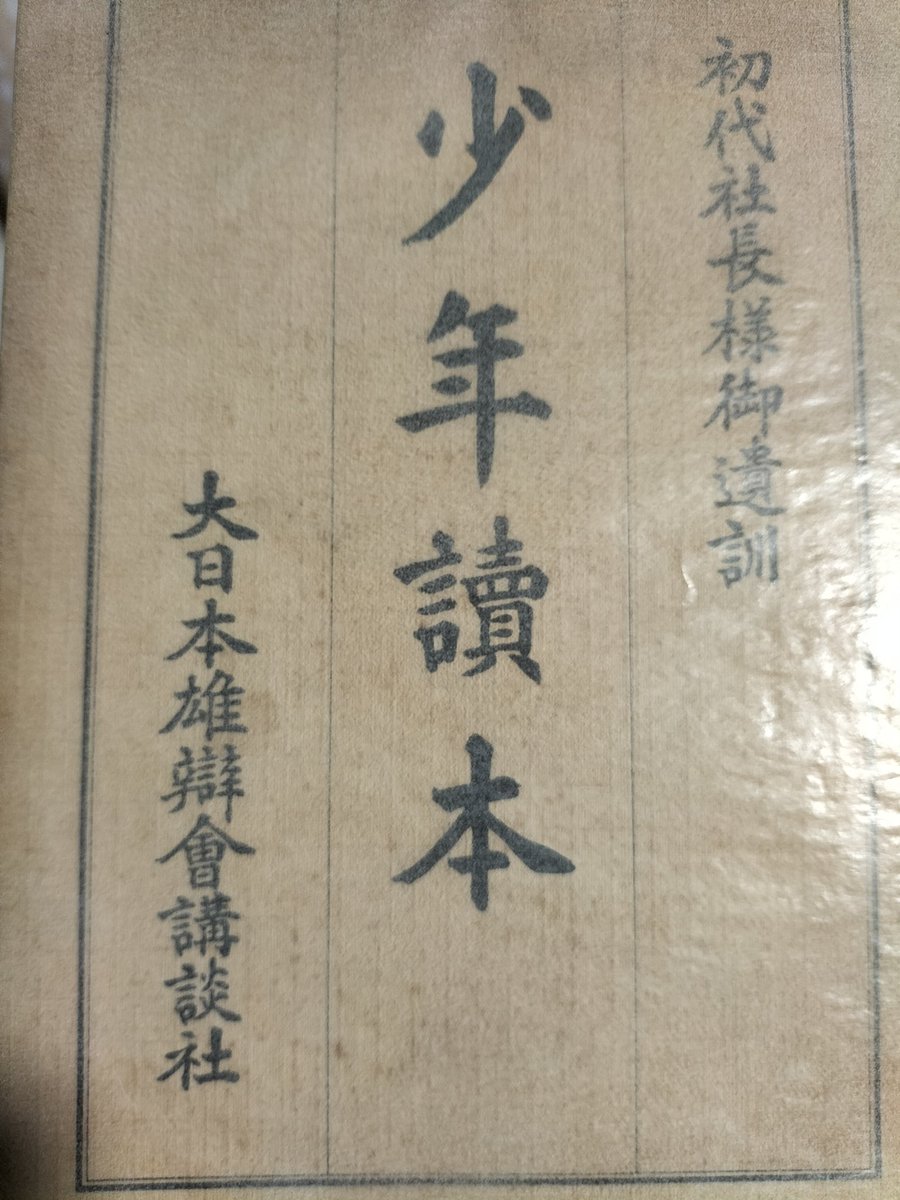 初代社長樣御遺訓
少年讀本
大日本雄辯會講談社